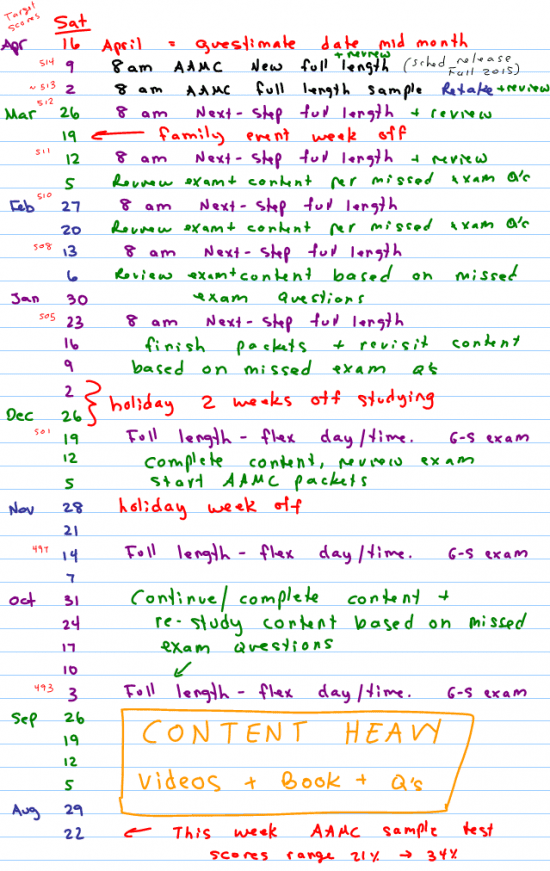 Target Scores
Sat
Apr 16 April = guestimate date mid month
514 9 8 am AAMC New full length + review (sched release Fall 2015)
~513 2 8 am AAMC full length sample Retake + review
Mar 512 26 8 am Next-Step full length + review
19 ← family event week off
511 12 8 am Next-Step full length + review
5 Review exam + content per missed exam Q's
Feb 510 27 8 am Next-Step full length
20 Review exam + content per missed exam Q's
508 13 8 am Next-Step full length
6 Review exam + content based on missed
Jan 30 exam questions
505 23 8 am Next-Step full length
16 finish packets + revisit content
9 based on missed exam Q's
2
holiday 2 weeks off studying
Dec 26
501 19 Full length - flex day/time. G-S exam
12 complete content, review exam
5 start AAMC packets
Nov 28 holiday week off
21
497 14 Full length - flex day/time. G-S exam
7
Oct 31 Continue/complete content +
24 re-study content based on missed
17 exam questions
10
493 3 Full length - flex day/time. G-S exam
Sep 26 CONTENT HEAVY
19
12
5 Videos + Book + Q's
Aug 29
22 ← This week AAMC sample test
scores range 21% → 34%